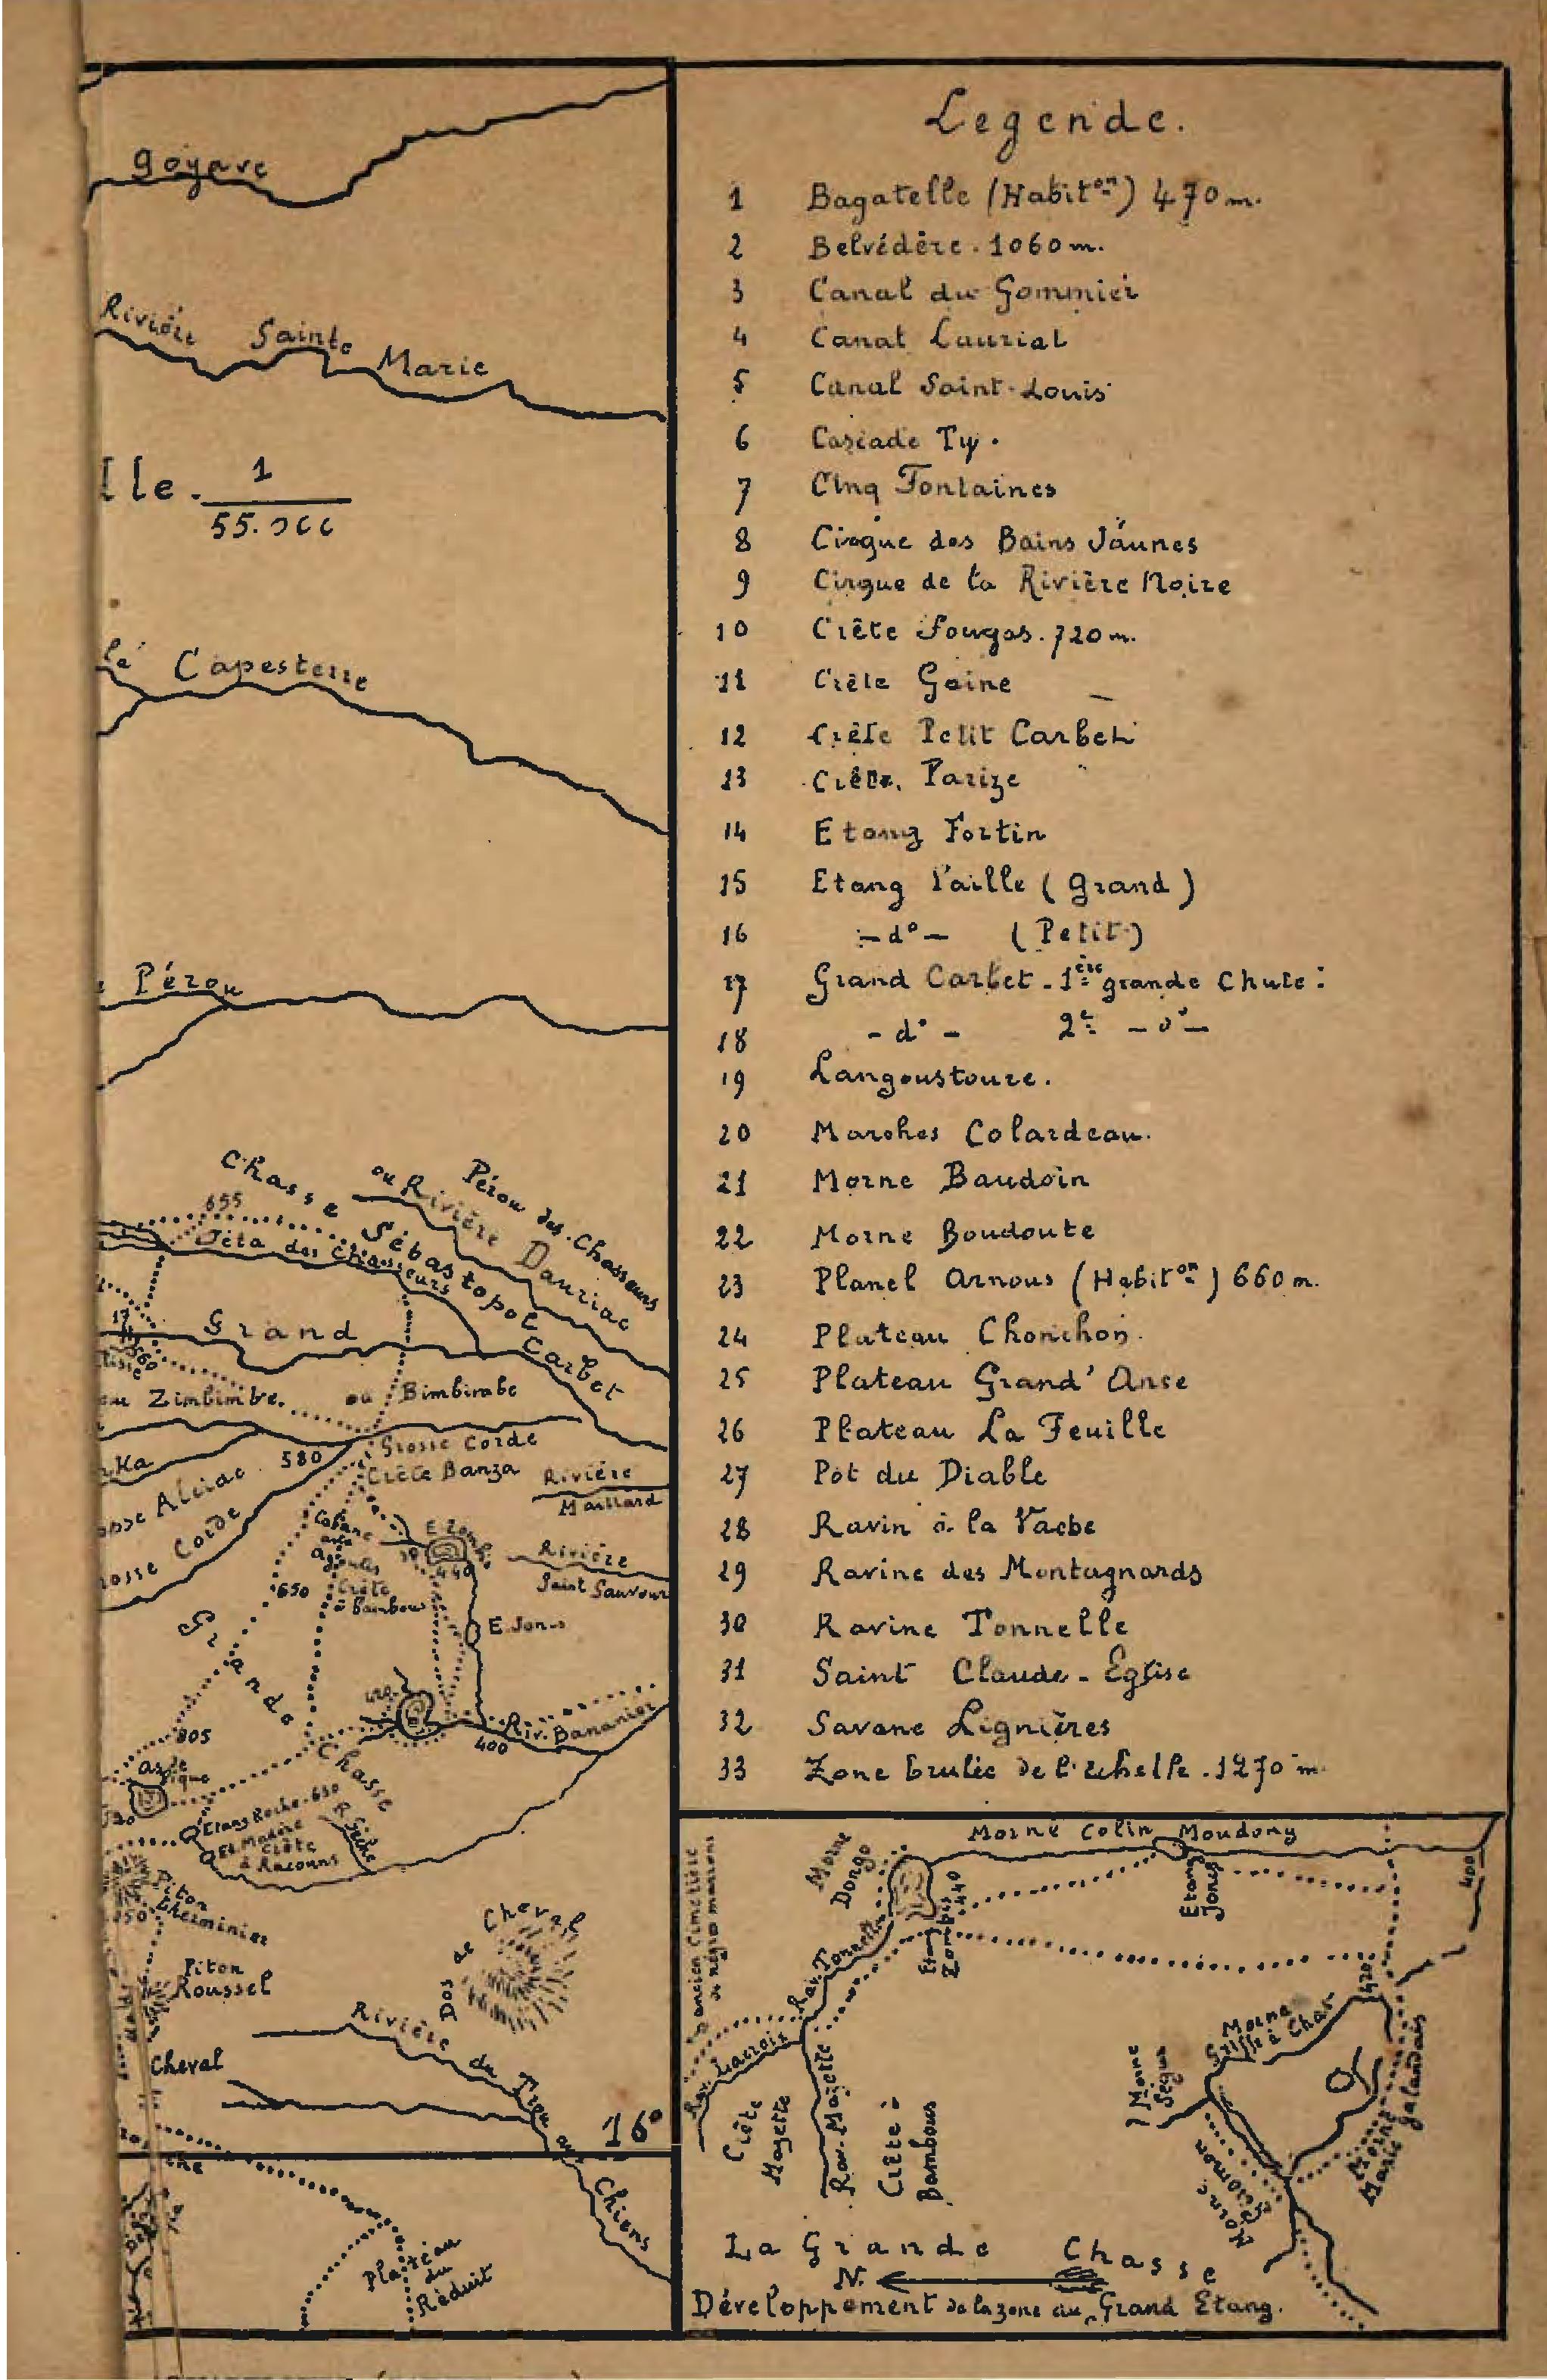 Goyave
Rivière Sainte Marie
1
55.000
Capesterre
Pérou
Chasse Sébastopol
ou Rivière Dauriac
Pérou des Chasseurs
655
Jeta des Chasseurs
17
Grand Carbet
560
Zimbimbe. ou Bimbirabe
580
Grosse Corde
Crête Banza
Alciac
Corde
Rivière
Maillard
Cabane
aux
Agoutis
Crête
à bambous
E Zombis
440
Rivière
Saint Sauveur
650
E. Jones
Grande Chasse
Riv. Bananier
400
805
Etang Roche. 650
Et Madère
Crête
à Racouns
R. Sèche
Piton
Lherminier
Piton
Roussel
Dos de Cheval
Cheval
Rivière du Trou au Chiens
16°
Plateau
du
Réduit
Legende.
1 Bagatelle (Habiton) 470 m.
2 Belvédère. 1060 m.
3 Canal du Gommier
4 Canal Laurial
5 Canal Saint-Louis
6 Cascade Ty.
7 Cinq Fontaines
8 Cirque des Bains Jaunes
9 Cirque de la Rivière Noire
10 Crête Fougas. 720 m.
11 Crête Goine
12 Crête Petit Carbet
13 Crête Parize
14 Etang Fortin
15 Etang Paille (Grand)
16 -do- (Petit)
17 Grand Carbet. 1ère grande Chute:
18 -do- 2e -do-
19 Langoustoure.
20 Marches Colardeau.
21 Morne Baudoin
22 Morne Boudoute
23 Planel Arnous (Habiton) 660 m.
24 Plateau Chonchon.
25 Plateau Grand' Anse
26 Plateau La Feuille
27 Pot du Diable
28 Ravin à la Vache
29 Ravine des Montagnards
30 Ravine Tonnelle
31 Saint Claude - Eglise
32 Savane Lignières
33 Zone brulée de l'Echelle. 1270 m.
Morne Colin Moudong
ancien Cimetière
de nègres marrons
Morne
Dongo
Etang
Zombis
440
Etang
Jones
400
Rav. Tonnelle
Rav. Lacroix
Crête
Mazette
Rav. Mazette
Crête à
Bambous
420
Morne
Griffe à Chat
Morne
Ségur
Morne
Marie
Galandais
Morne
La Grande Chasse
N.
Développement de la zone du Grand Etang.